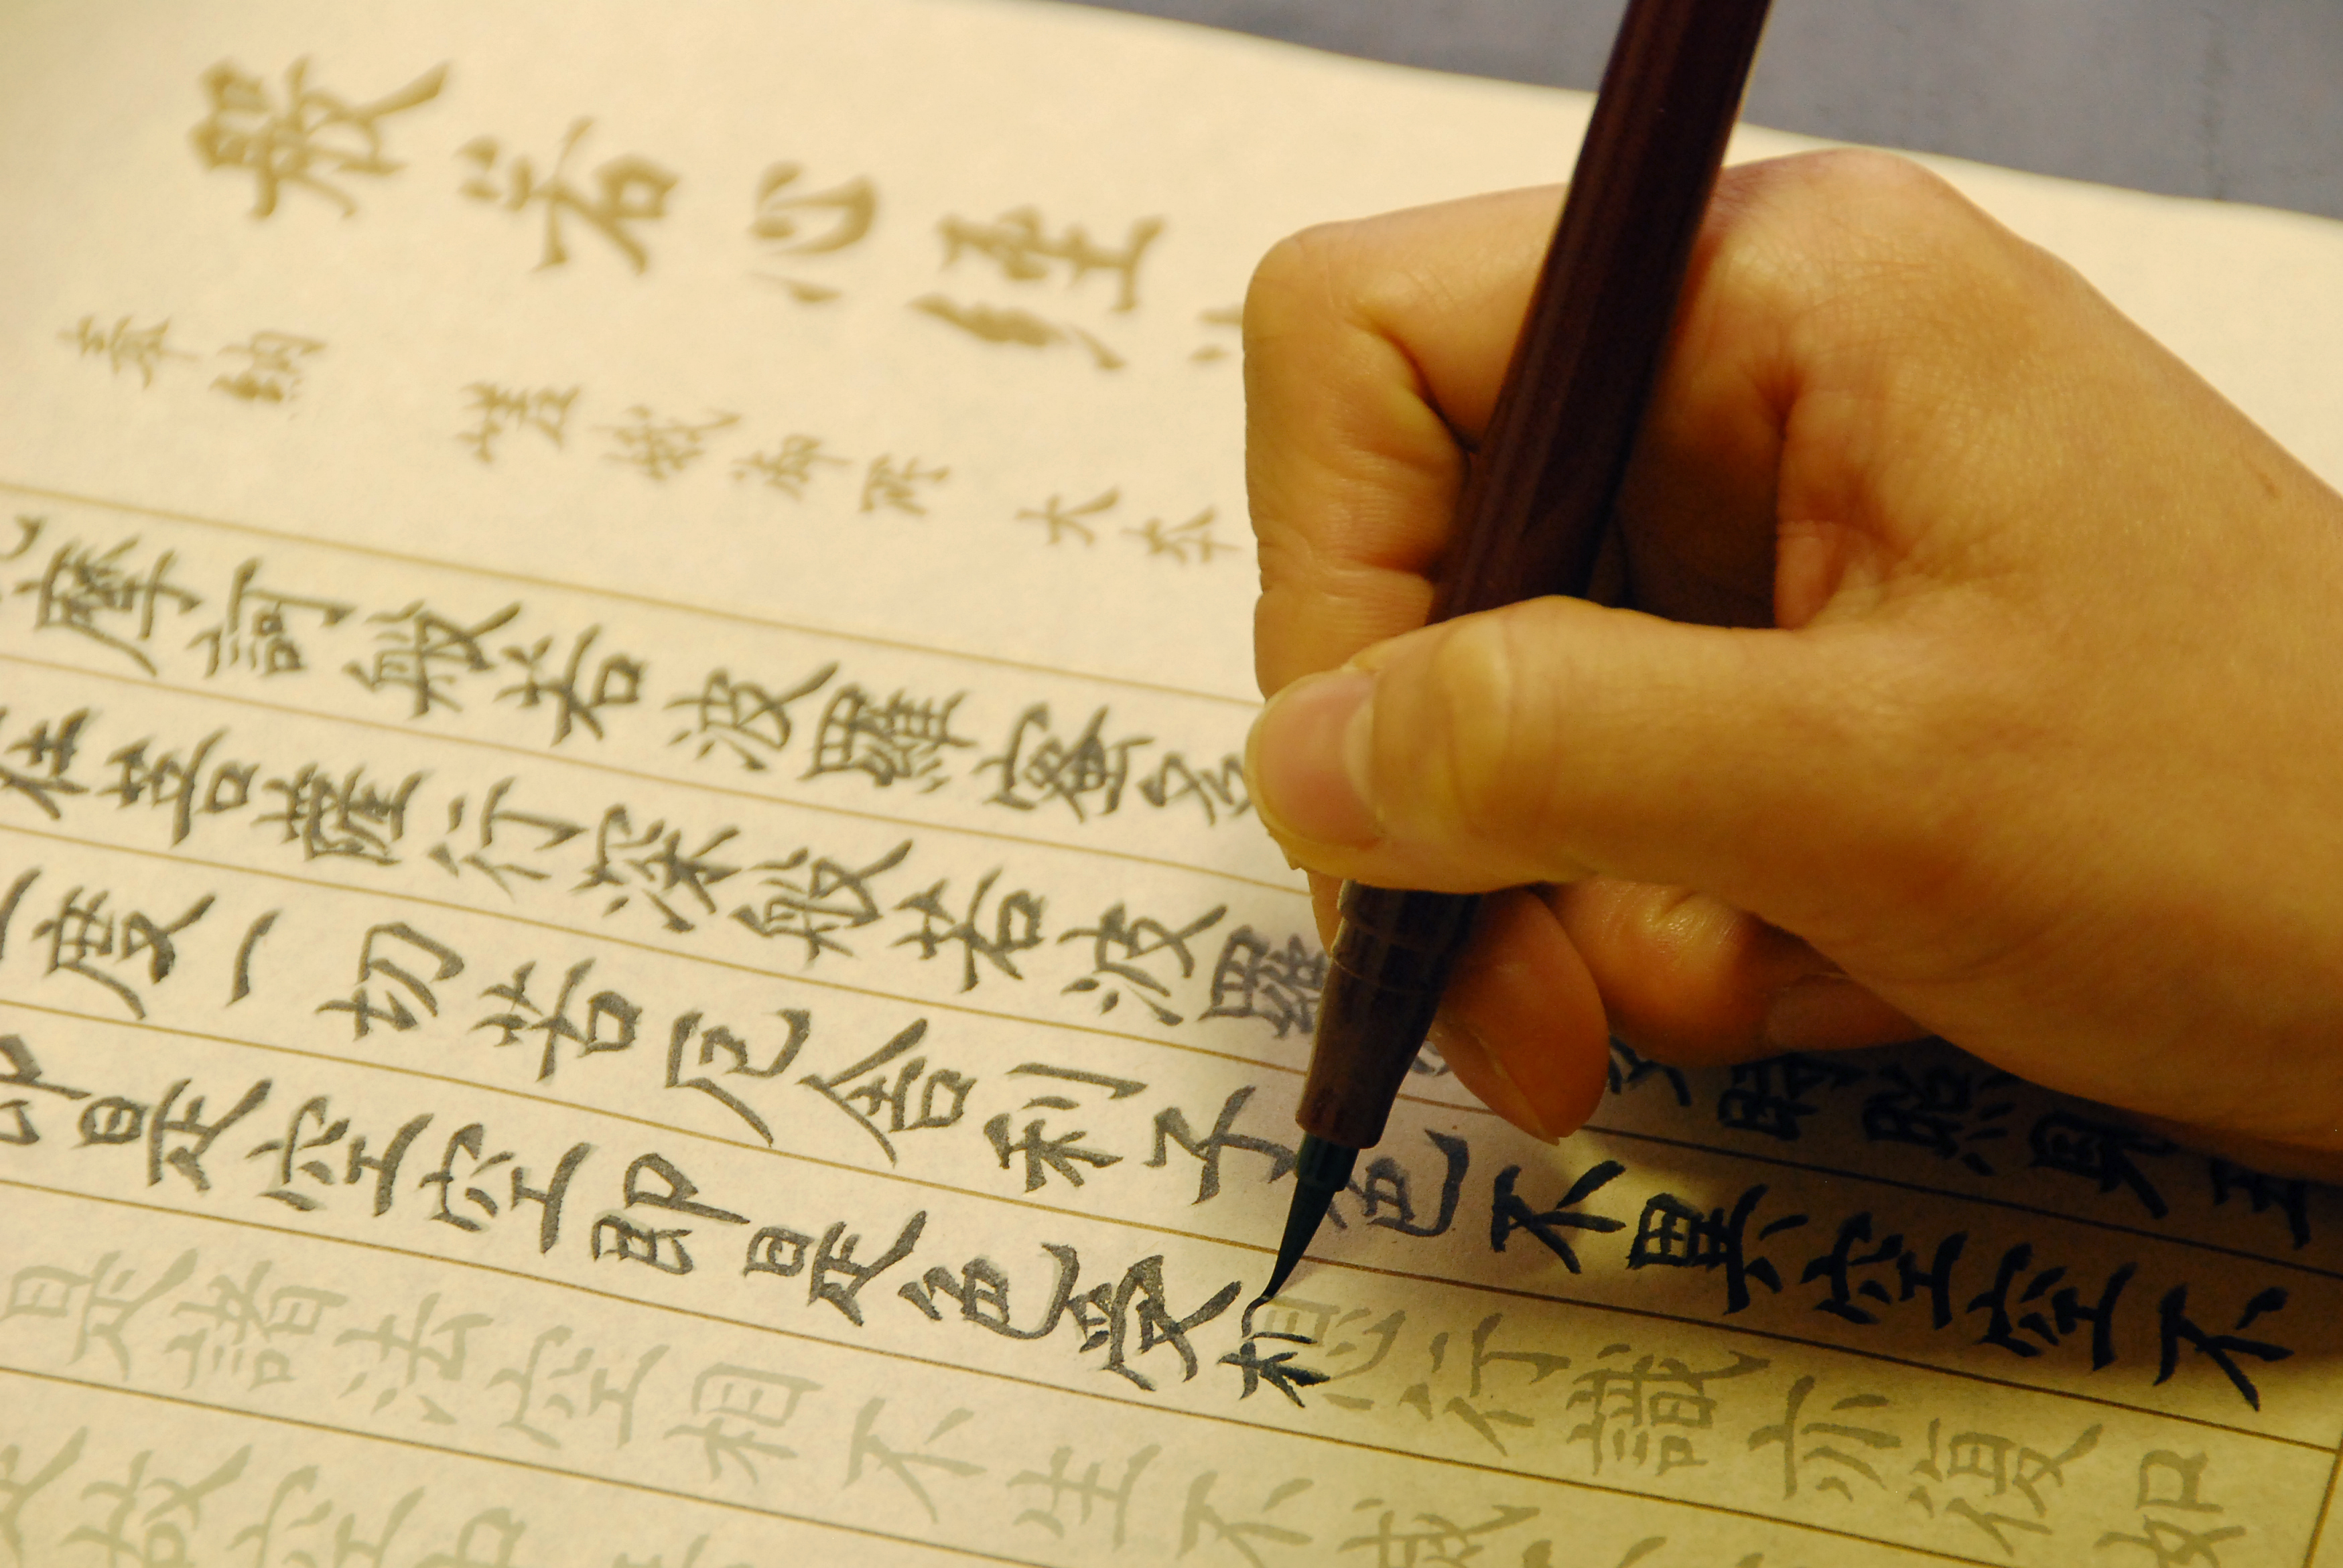 般若心経
奉納 嵯峨御所 大本
摩訶般若波羅蜜多
在菩薩行深般若波羅多時照見五
度一切苦厄舎利子色不異空空不
即是空空即是色受想行識亦復如
是諸法空相不生不滅
是故空中